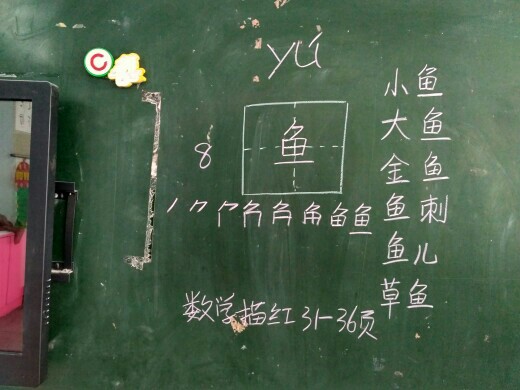 yú
8
鱼
小鱼
大鱼
金鱼
鱼刺
鱼儿
草鱼
数学描红31-36页